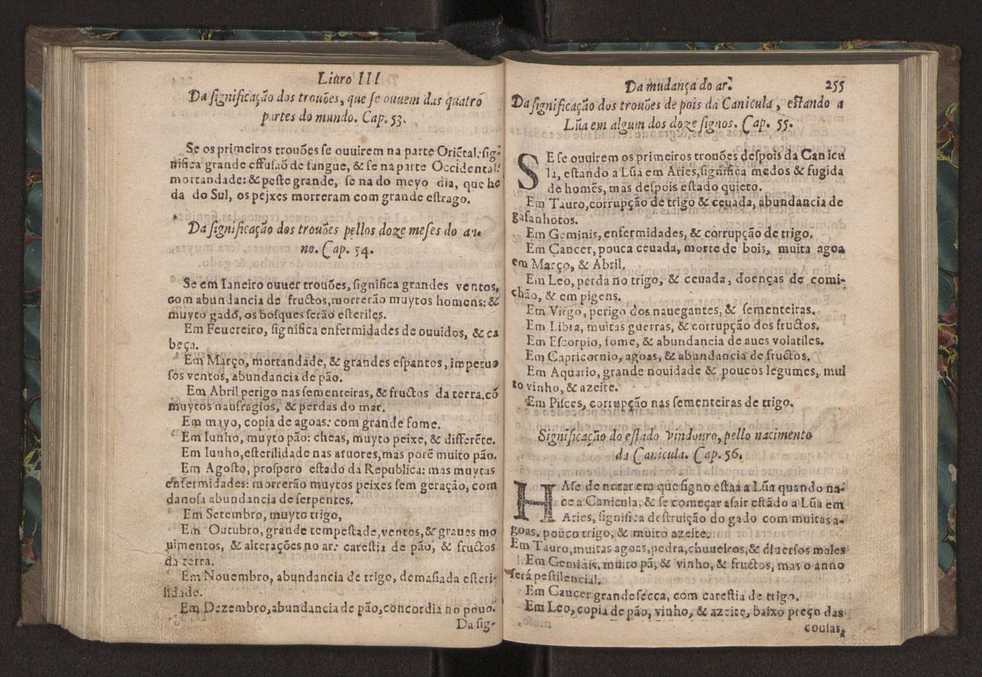 Liuro III
Da significação dos trouões, que se ouuem das quatro
partes do mundo. Cap. 53.
Se os primeiros trouões se ouuirem na parte Oriẽtal: sig-
nifica grande effusaõ de sangue, & se na parte Occidental:
mortandade: & peste grande, se na do meyo dia, que he
da do Sul, os pejxes morreram com grande estrago.
Da significação dos trouões pellos doze meses do an-
no. Cap. 54.
Se em Ianeiro ouuer trouões, significa grandes ventos,
com abundancia de fructos, morrerão muytos homens: &
muyto gado, os bosques serão esteriles.
Em Feuereiro, significa enfermidades de ouuidos, & ca
beça.
Em Março, mortandade, & grandes espantos, impetuo
sos ventos, abundancia de pão.
Em Abril perigo nas sementeiras, & fructos da terra, cõ
muytos naufragios, & perdas do mar.
Em mayo, copia de agoas: com grande fome.
Em Iunho, muyto pão: cheas, muyto peixe, & differẽte.
Em Iunho, esterilidade nas aruores, mas porẽ muito pão.
Em Agosto, prospero estado da Republica: mas muytas
enfermidades: morrerão muytos peixes sem geração, com
danosa abundancia de serpentes.
Em Setembro, muyto trigo,
Em Outubro, grande tempestade, ventos, & graues mo
uimentos, & alterações no ar: carestia de pão, & fructos
da terra.
Em Nouembro, abundancia de trigo, demasiada esteri-
lidade.
Em Dezembro, abundancia de pão, concordia no pouo.
Da sig-
Da mudança do ar. 255
Da significação dos trouões depois da Canicula, estando a
Lũa em algum dos doze signos. Cap. 55.
SE se ouuirem os primeiros trouões despois da Canicu
la, estando a Lũa em Aries, significa medos & fugida
de homẽs, mas despois estado quieto.
Em Tauro, corrupção de trigo & ceuada, abundancia de
gafanhotos.
Em Geminis, enfermidades, & corrupção de trigo.
Em Cancer, pouca ceuada, morte de bois, muita agoa
em Março, & Abril.
Em Leo, perda no trigo, & ceuada, doenças de comi-
chão, & em pigens.
Em Virgo, perigo dos nauegantes, & sementeiras.
Em Libra, muitas guerras, & corrupção dos fructos.
Em Escorpio, fome, & abundancia de aues volatiles.
Em Capricornio, agoas, & abundancia de fructos.
Em Aquario, grande nouidade & poucos legumes, mui
to vinho, & azeite.
Em Pisces, corrupção nas sementeiras de trigo.
Significação do estado vindouro, pello nacimento
da Canicula. Cap. 56.
HAse de notar em que signo estaa a Lũa quando na-
ce a Canicula: & se começar a sair estãdo a Lũa em
Aries, significa destruição do gado com muitas a-
goas, pouco trigo, & muito azeite.
Em Tauro, muitas agoas, pedra, chuueiros, & diuersos males
Em Geminis, muito pã, & vinho, & fructos, mas o anno
será pestilencial.
Em Cancer grande secca, com carestia de trigo.
Em Leo, copia de pão, vinho, & azeite, baixo preço das
cousas,